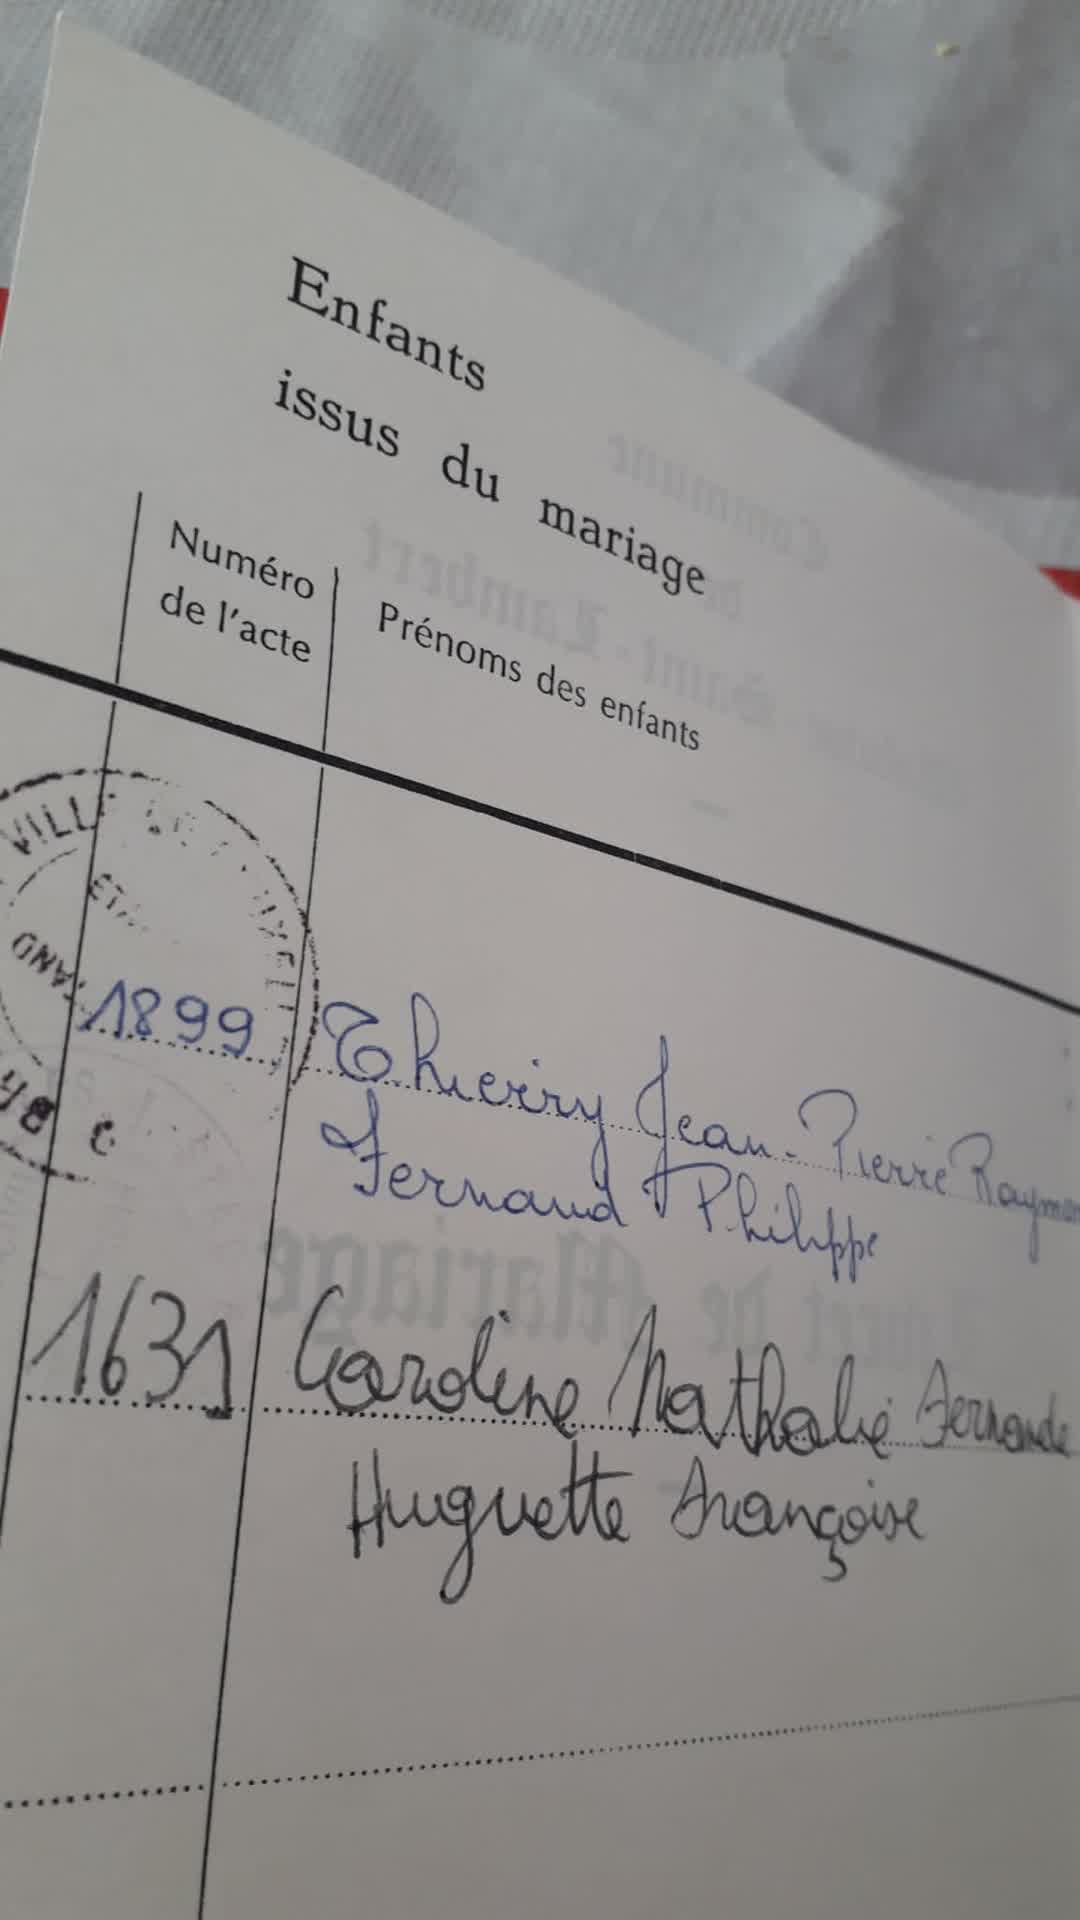 Enfants
issus du mariage
Numéro
de l'acte
Prénoms des enfants
VILLE
1899 Thierry Jean-Pierre Raymon
Fernand Philippe
1631 Caroline Nathalie Fernande
Huguette Françoise